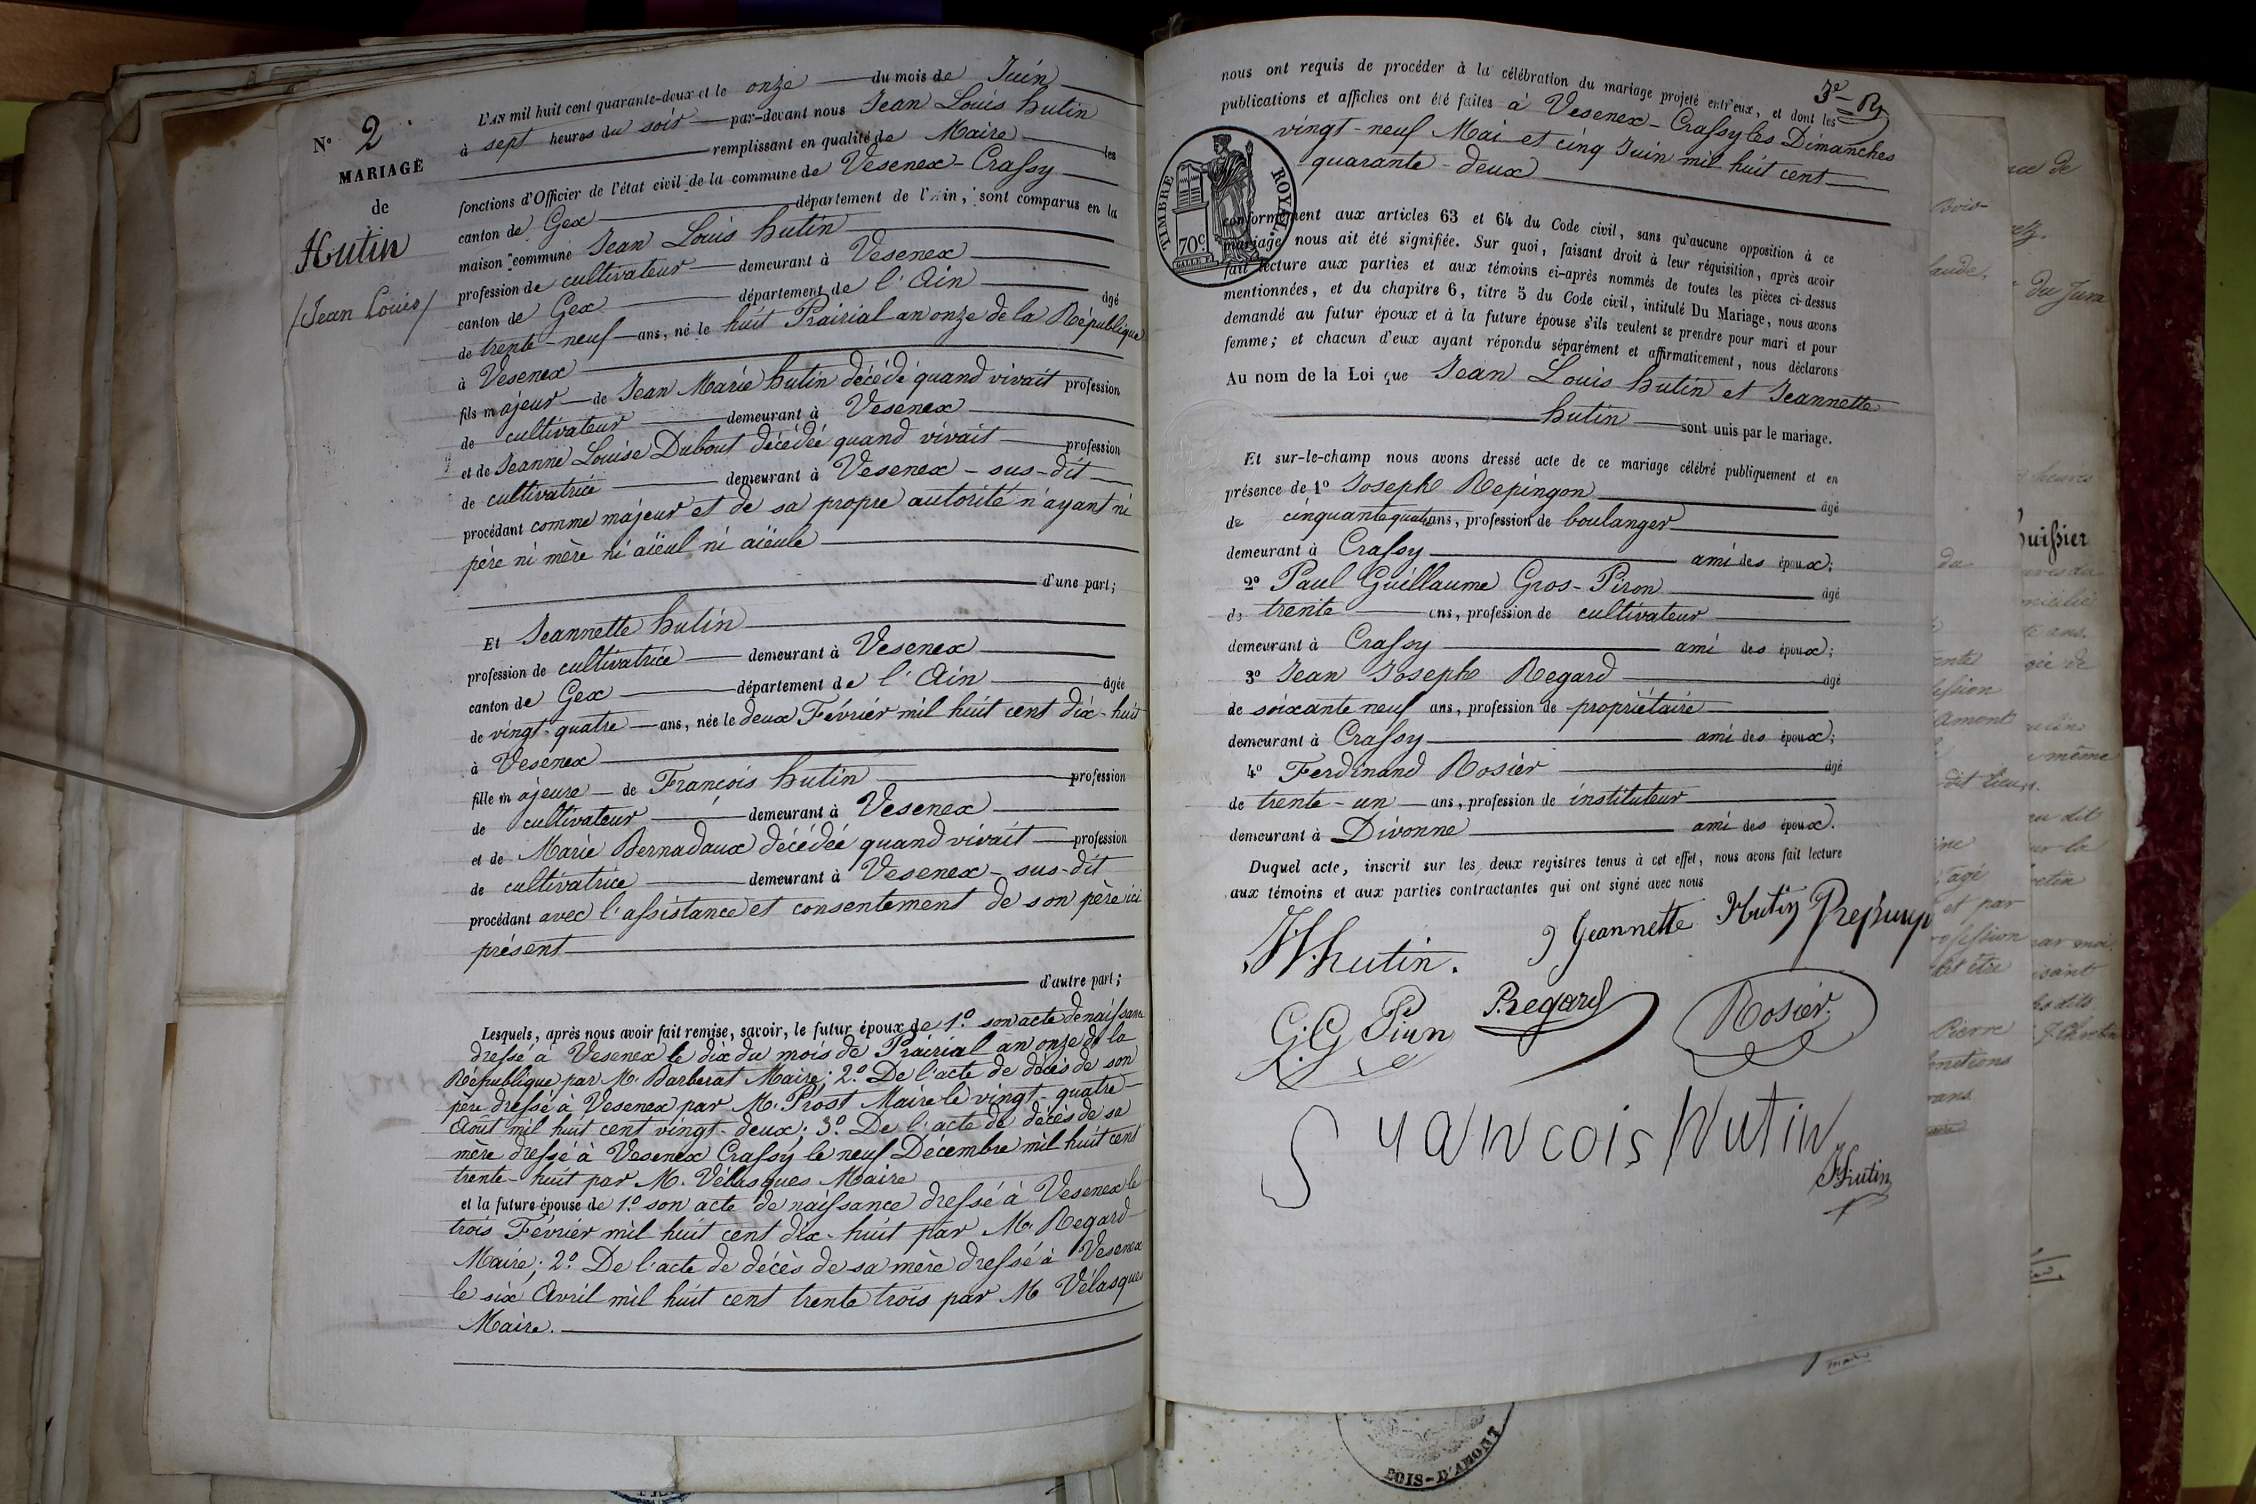 N° 2
MARIAGE
de
Hutin
/Jean Louis/
L'AN mil huit cent quarante-deux et le onze du mois de Juin
à sept heures du soir par-devant nous Jean Louis hutin
remplissant en qualité de Maire les
fonctions d'Officier de l'état civil de la commune de Vesenex-Crassy
canton de Gex département de l'Ain, sont comparus en la
maison commune Jean Louis hutin
profession de cultivateur demeurant à Vesenex
canton de Gex département de l'Ain âgé
de trente-neuf ans, né le huit Prairial an onze de la République
à Vesenex
fils majeur de Jean Marie hutin décédé quand vivait profession
de cultivateur demeurant à Vesenex
et de Jeanne Louise Dubout décédée quand vivait profession
de cultivatrice demeurant à Vesenex-sus-dit
procédant comme majeur et de sa propre autorité n'ayant ni
père ni mère ni aïeul ni aïeule
d'une part;
Et Jeannette hutin
profession de cultivatrice demeurant à Vesenex
canton de Gex département de l'Ain âgée
de vingt-quatre ans, née le deux Février mil huit cent dix-huit
à Vesenex
fille majeure de François hutin profession
de cultivateur demeurant à Vesenex
et de Marie Bernadaux décédée quand vivait profession
de cultivatrice demeurant à Vesenex-sus-dit
procédant avec l'assistance et consentement de son père ici
présent
d'autre part;
Lesquels, après nous avoir fait remise, savoir, le futur époux de 1° son acte de naissance
dressé à Vesenex le dix du mois de Prairial an onze de la
République par M. Barberat Maire; 2° De l'acte de décès de son
père dressé à Vesenex par M. Prost Maire le vingt-quatre
Août mil huit cent vingt-deux; 3° De l'acte de décès de sa
mère dressé à Vesenex Crassy le neuf Décembre mil huit cent
trente-huit par M. Vélasques Maire
et la future épouse de 1° son acte de naissance dressé à Vesenex le
trois Février mil huit cent dix-huit par M. Regard
Maire; 2° De l'acte de décès de sa mère dressé à Vesenex
le six Avril mil huit cent trente trois par M Vélasques
Maire.
3e
nous ont requis de procéder à la célébration du mariage projeté entr'eux, et dont les
publications et affiches ont été faites à Vesenex-Crassy les Dimanches
vingt-neuf Mai et cinq Juin mil huit cent
quarante-deux
TIMBRE ROYAL
70c.
conformément aux articles 63 et 64 du Code civil, sans qu'aucune opposition à ce
mariage nous ait été signifiée. Sur quoi, faisant droit à leur réquisition, après avoir
fait lecture aux parties et aux témoins ci-après nommés de toutes les pièces ci-dessus
mentionnées, et du chapitre 6, titre 5 du Code civil, intitulé Du Mariage, nous avons
demandé au futur époux et à la future épouse s'ils veulent se prendre pour mari et pour
femme; et chacun d'eux ayant répondu séparément et affirmativement, nous déclarons
Au nom de la Loi que Jean Louis hutin et Jeannette
hutin sont unis par le mariage.
Et sur-le-champ nous avons dressé acte de ce mariage célébré publiquement et en
présence de 1° Joseph Repingon âgé
de cinquante quatre ans, profession de boulanger
demeurant à Crassy ami des époux;
2° Paul Guillaume Gros-Piron âgé
de trente ans, profession de cultivateur
demeurant à Crassy ami des époux;
3° Jean Joseph Regard âgé
de soixante neuf ans, profession de propriétaire
demeurant à Crassy ami des époux;
4° Ferdinand Rosier âgé
de trente-un ans, profession de instituteur
demeurant à Divonne ami des époux.
Duquel acte, inscrit sur les deux registres tenus à cet effet, nous avons fait lecture
aux témoins et aux parties contractantes qui ont signé avec nous
hutin. Jeannette Hutin
Regard Rosier.
françois Hutin
hutin
du Jura
huissier
BOIS-D'AMONT